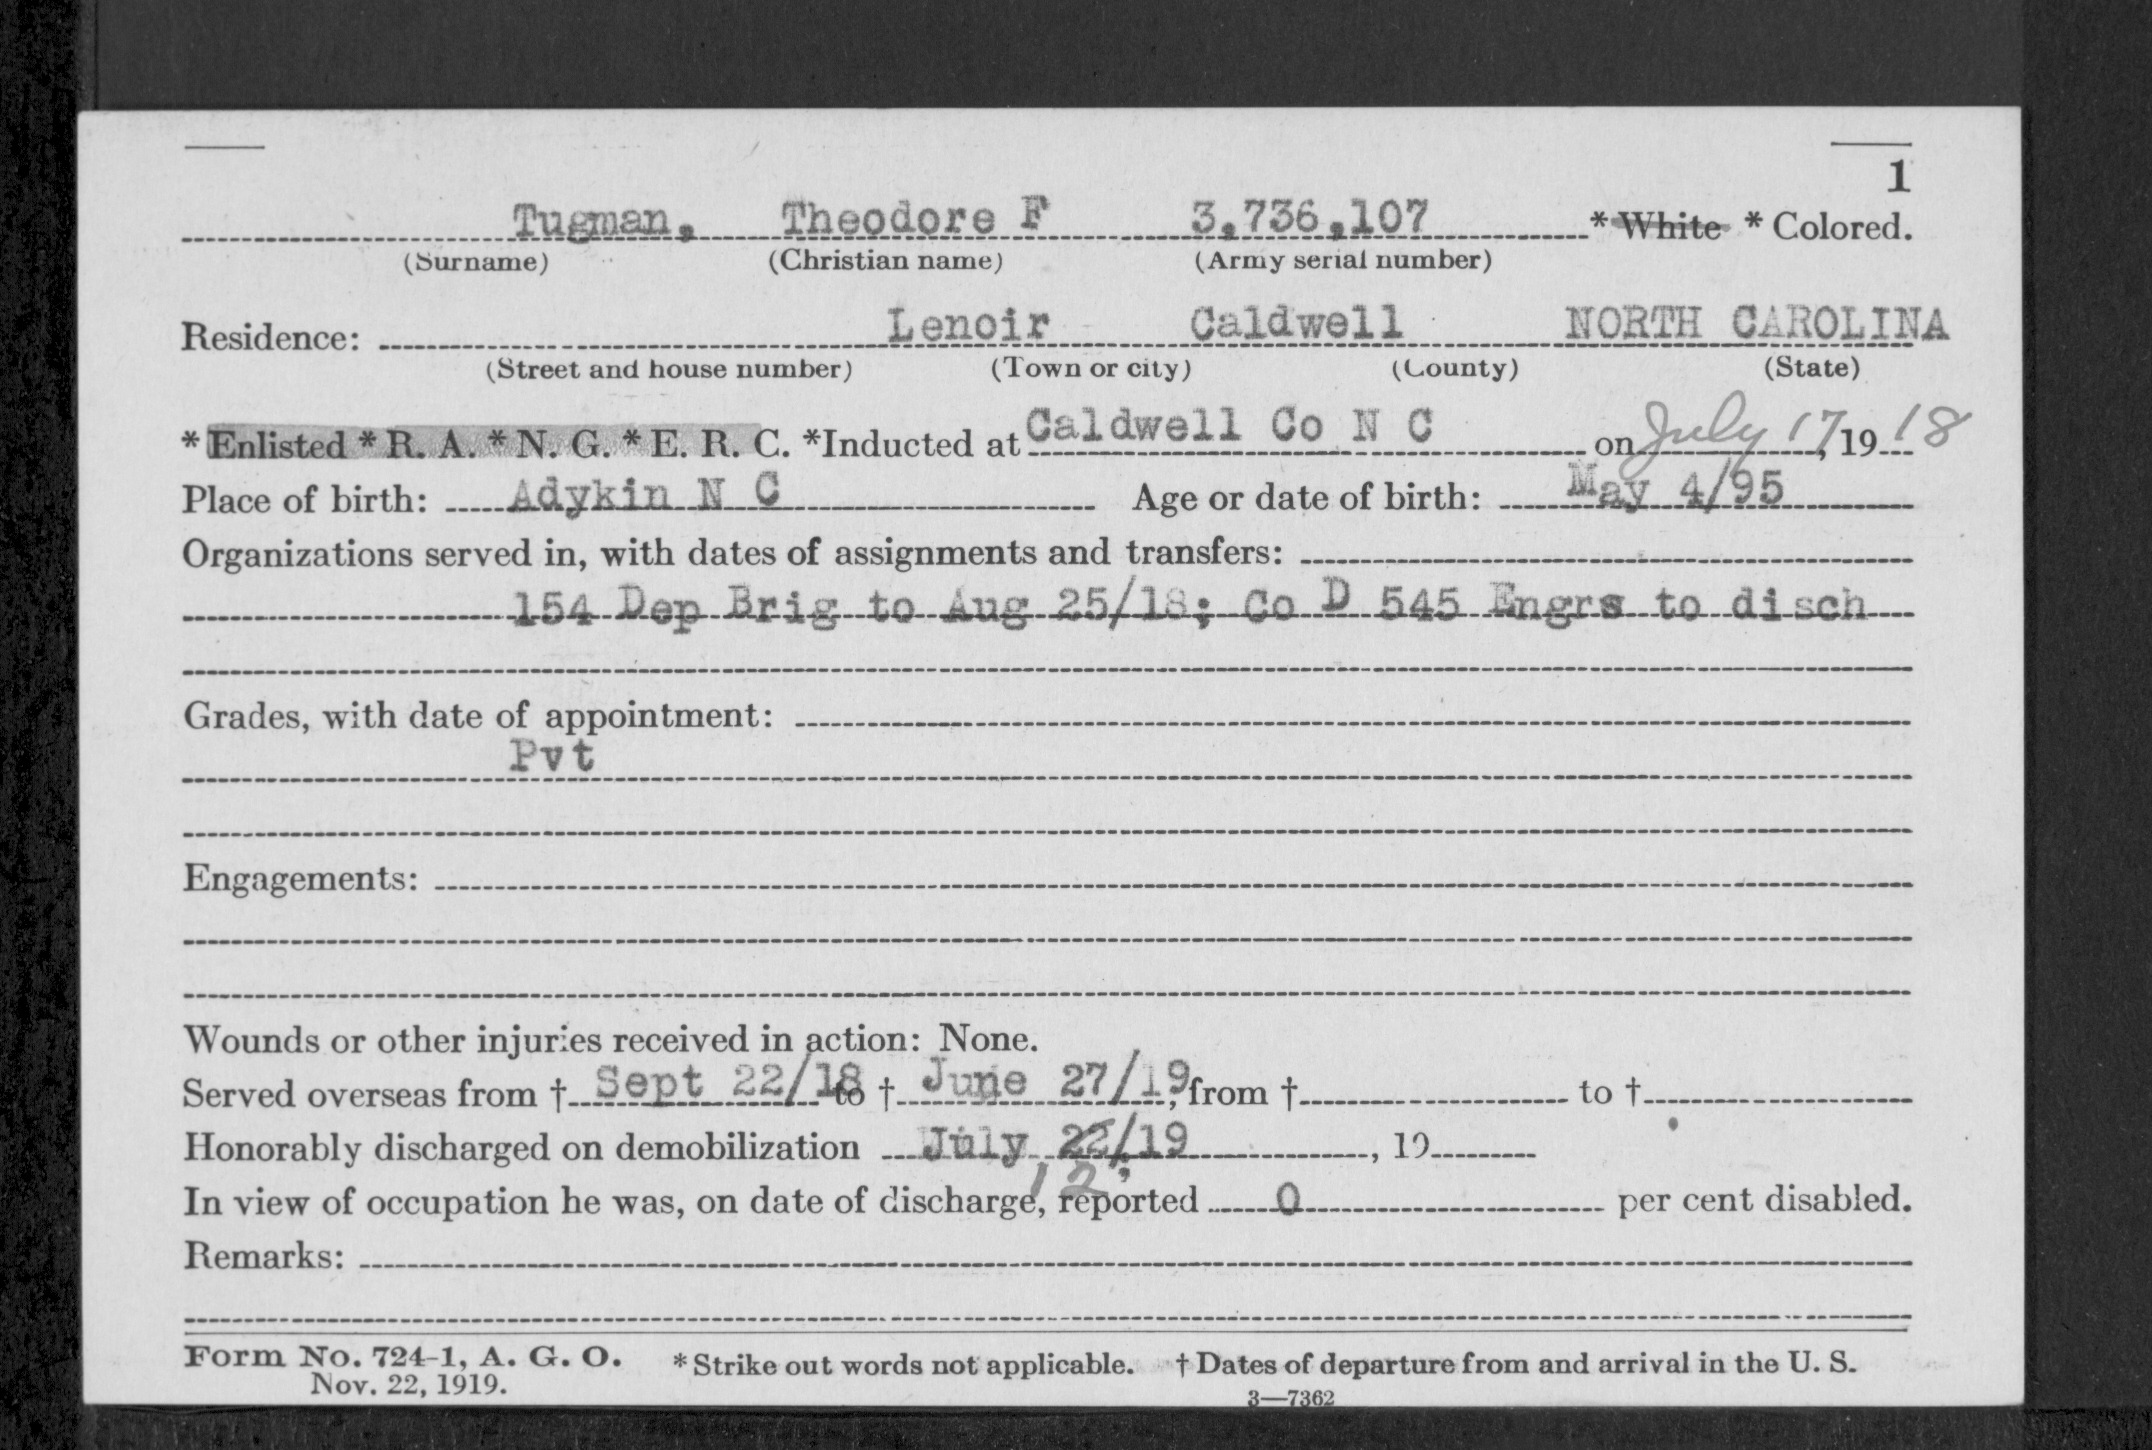 1
Tugman, Theodore F 3,736,107 * White * Colored.
(Surname) (Christian name) (Army serial number)
Residence: Lenoir Caldwell NORTH CAROLINA
(Street and house number) (Town or city) (County) (State)
* Enlisted * R. A. * N. G. * E. R. C. * Inducted at Caldwell Co N C on July 17, 19 18
Place of birth: Adykin N C Age or date of birth: May 4/95
Organizations served in, with dates of assignments and transfers:
154 Dep Brig to Aug 25/18; Co D 545 Engrs to disch
Grades, with date of appointment:
Pvt
Engagements:
Wounds or other injuries received in action: None.
Served overseas from † Sept 22/18 to † June 27/19, from † to †
Honorably discharged on demobilization July 22/19, 19
12
In view of occupation he was, on date of discharge, reported 0 per cent disabled.
Remarks:
Form No. 724-1, A. G. O. * Strike out words not applicable. † Dates of departure from and arrival in the U. S.
Nov. 22, 1919.
3—7362